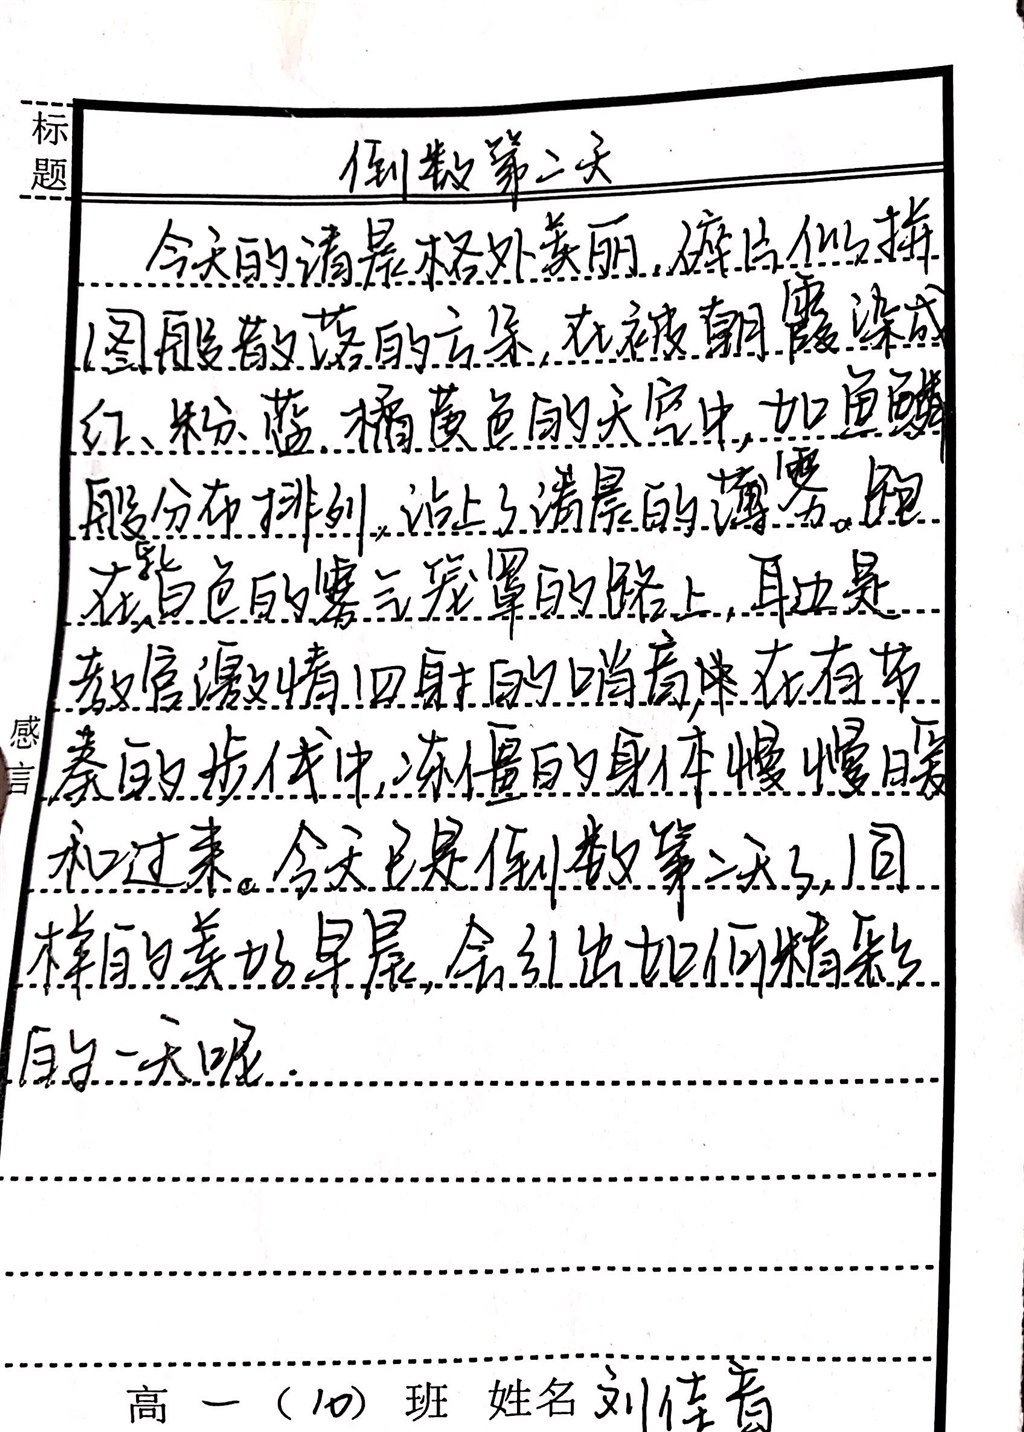 标题
倒数第二天
今天的清晨格外美丽,碎片似拼
图般散落的云朵,在被朝霞染成
红、粉、蓝、橘黄色的天空中,如鱼鳞
般分布排列,沾上了清晨的薄雾。跑
在乳白色的雾气笼罩的路上,耳边是
教官激情四射的哨音,在有节
奏的步伐中,冻僵的身体慢慢暖
感言
和过来。今天已是倒数第二天了,同
样的美好早晨,会引出如何精彩
的一天呢.
高一(10)班 姓名 刘佳音